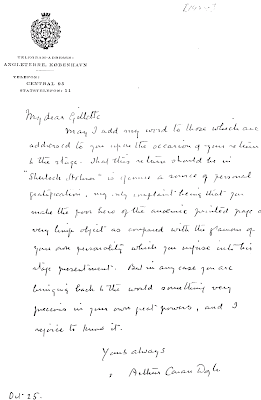 TELEGRAM-ADRESSE:
ANGLETERRE, KØBENHAVN
TELEFON:
CENTRAL 65
STATSTELEFON: 51
My dear Gillette
May I add my word to those which are
addressed to you upon the occasion of your return
to the stage. That this return should be in
"Sherlock Holmes" is of course a source of personal
gratification, my only complaint being that you
make the poor hero of the anaemic printed page a
very limp object as compared with the glamour of
your own personality which you infuse into his
stage presentment. But in any case you are
bringing back to the world something very
precious in your own great powers, and I
rejoice to know it.
Yours always
Arthur Conan Doyle
Oct 25.